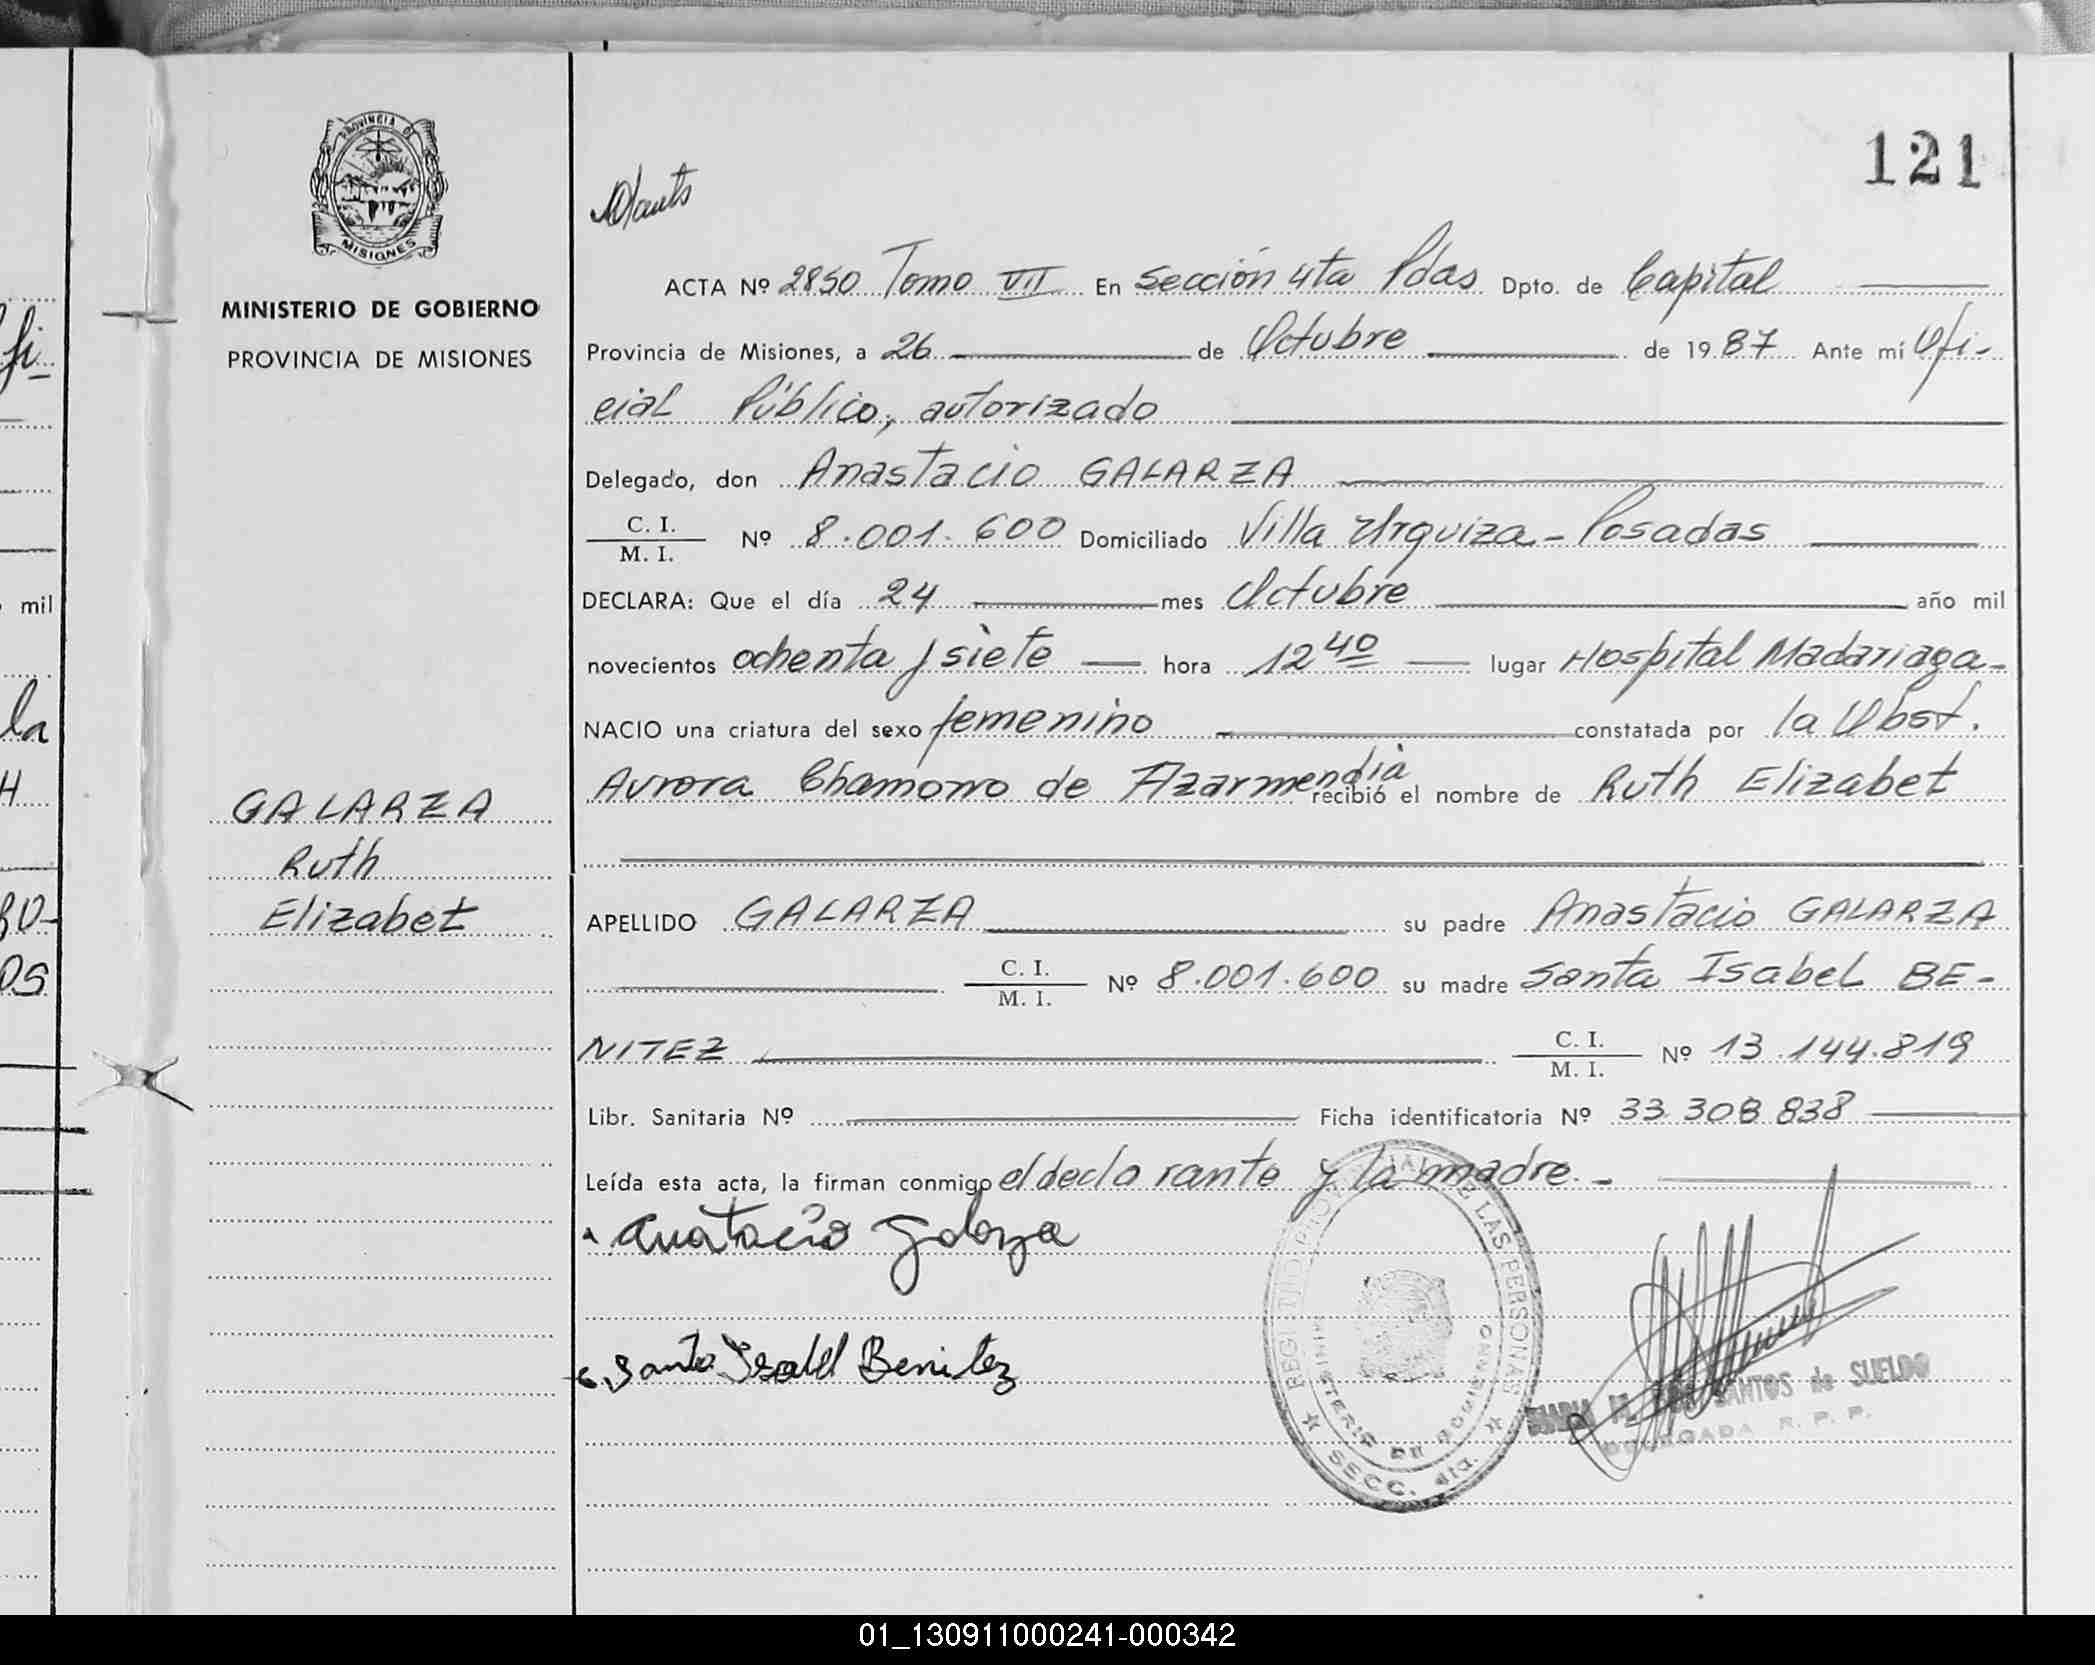 121
PROVINCIA DE
MISIONES
MINISTERIO DE GOBIERNO
PROVINCIA DE MISIONES
ACTA Nº 2850 Tomo VII En Sección 4ta Pdas Dpto. de Capital
Provincia de Misiones, a 26 de Octubre de 1987 Ante mí Ofi-
cial Público, autorizado
Delegado, don Anastacio GALARZA
C. I.
M. I. Nº 8.001.600 Domiciliado Villa Urquiza - Posadas
DECLARA: Que el día 24 mes Octubre año mil
novecientos ochenta y siete hora 12 40 lugar Hospital Madariaga-
NACIO una criatura del sexo femenino constatada por la Obst.
Aurora Chamorro de Azarmendia recibió el nombre de Ruth Elizabet
GALARZA
Ruth
Elizabet
APELLIDO GALARZA su padre Anastacio GALARZA
C. I.
M. I. Nº 8.001.600 su madre Santa Isabel BE-
NITEZ C. I.
M. I. Nº 13.144.819
Libr. Sanitaria Nº Ficha identificatoria Nº 33.308.838
Leída esta acta, la firman conmigo el declarante y la madre.-
Anatacio Galarza
Santa Isabel Benitez
REGISTRO PROVINCIAL DE LAS PERSONAS
MINISTERIO DE GOBIERNO
SECC. 4ta.
SANTOS de SUELDO
DELEGADA R. P. P.
fi
mil
la
H
OS
01_130911000241-000342